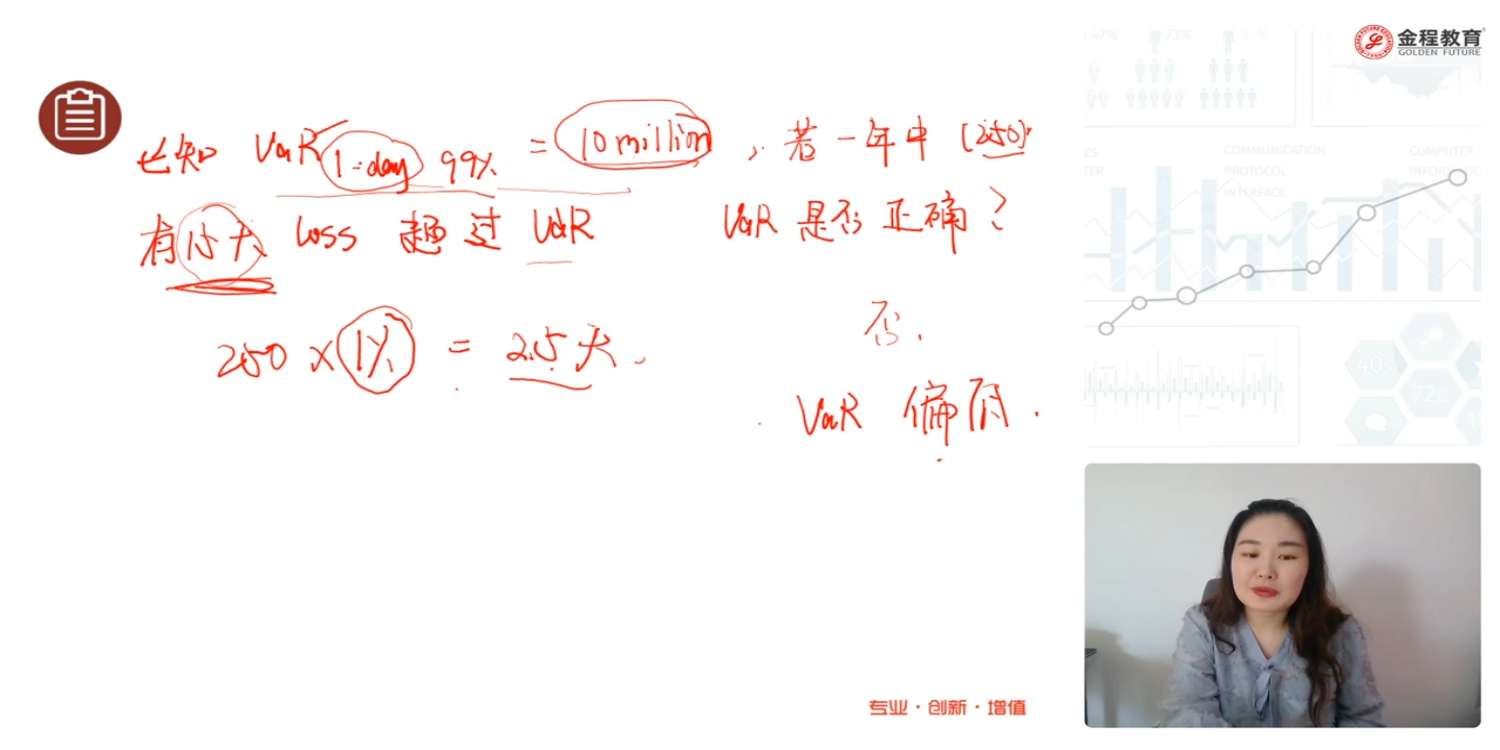 已知 VaR 1-day 99% = 10 million , 若一年中 (250)
有15天 loss 超过 VaR VaR 是否正确?
250 × 1% = 2.5天.
否.
VaR 偏低.
金程教育
GOLDEN FUTURE
COMMUNICATION
PROTOCOL
INTERFACE
COMPUTER
专业·创新·增值